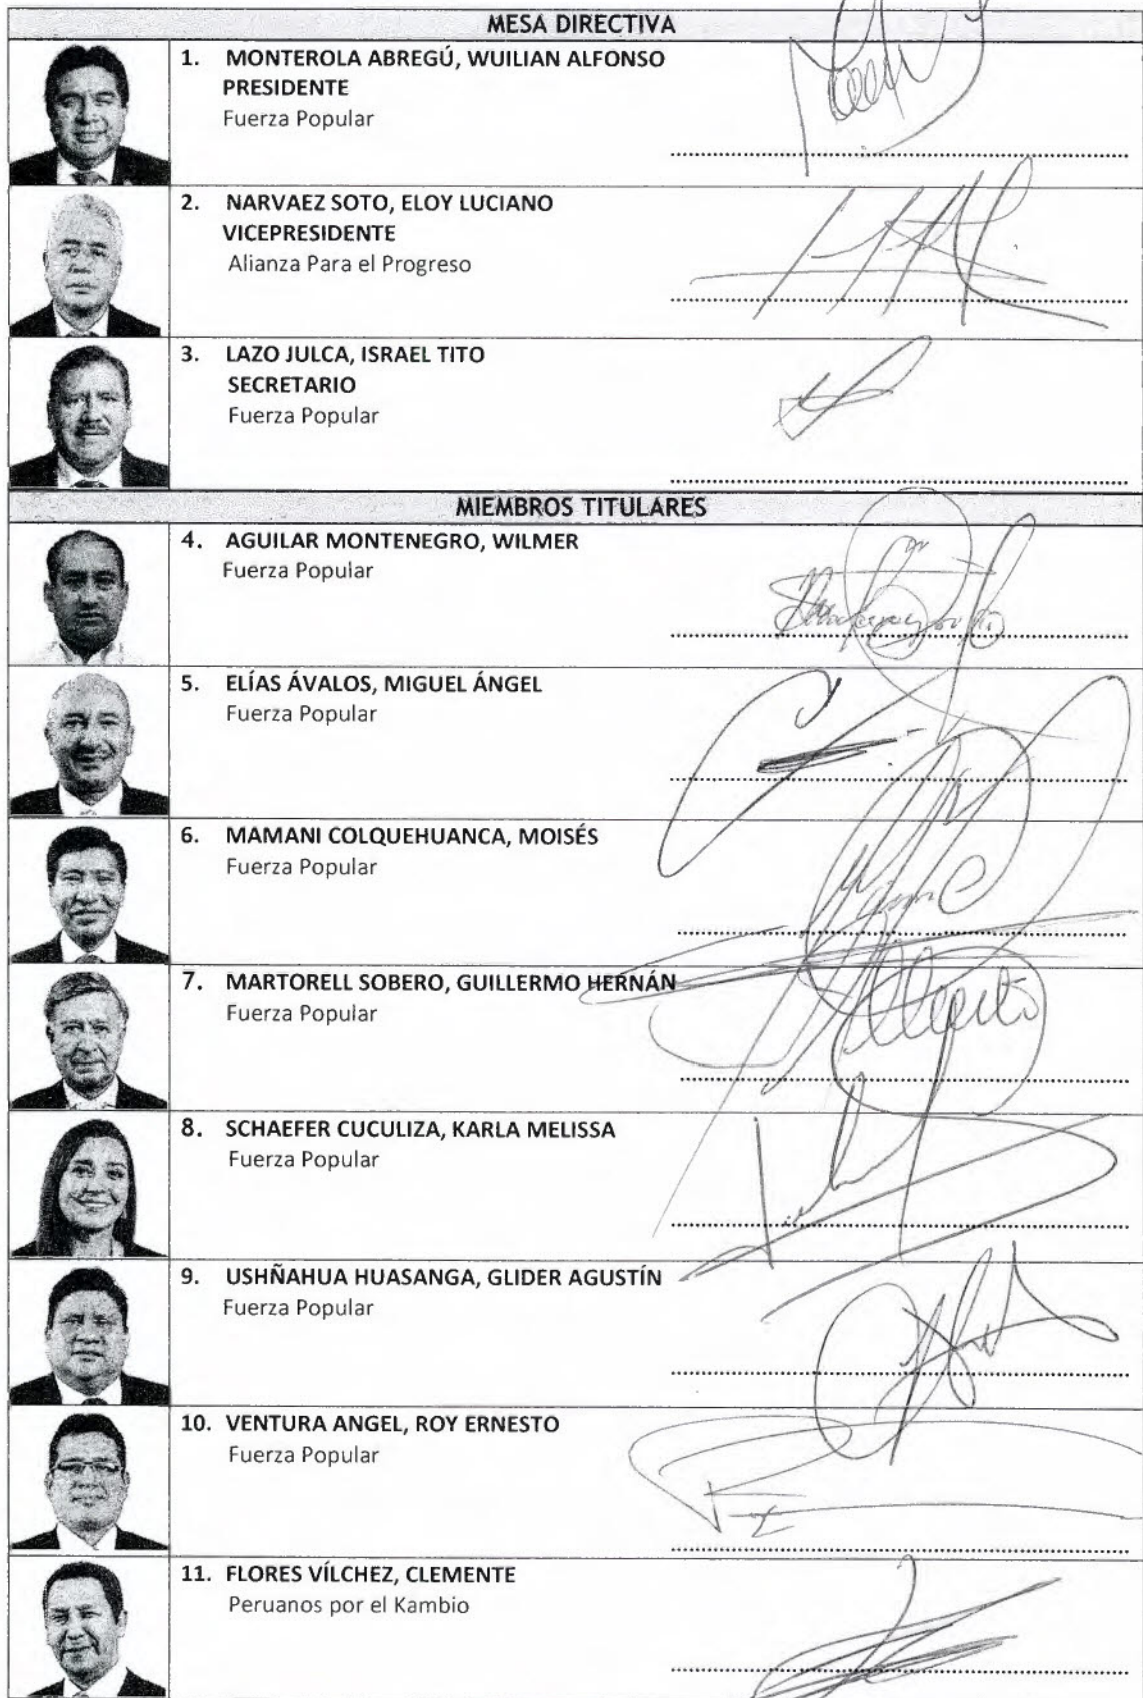 MESA DIRECTIVA
1. MONTEROLA ABREGÚ, WUILIAN ALFONSO
PRESIDENTE
Fuerza Popular
2. NARVAEZ SOTO, ELOY LUCIANO
VICEPRESIDENTE
Alianza Para el Progreso
3. LAZO JULCA, ISRAEL TITO
SECRETARIO
Fuerza Popular
MIEMBROS TITULARES
4. AGUILAR MONTENEGRO, WILMER
Fuerza Popular
5. ELÍAS ÁVALOS, MIGUEL ÁNGEL
Fuerza Popular
6. MAMANI COLQUEHUANCA, MOISÉS
Fuerza Popular
7. MARTORELL SOBERO, GUILLERMO HERNÁN
Fuerza Popular
8. SCHAEFER CUCULIZA, KARLA MELISSA
Fuerza Popular
9. USHÑAHUA HUASANGA, GLIDER AGUSTÍN
Fuerza Popular
10. VENTURA ANGEL, ROY ERNESTO
Fuerza Popular
11. FLORES VÍLCHEZ, CLEMENTE
Peruanos por el Kambio